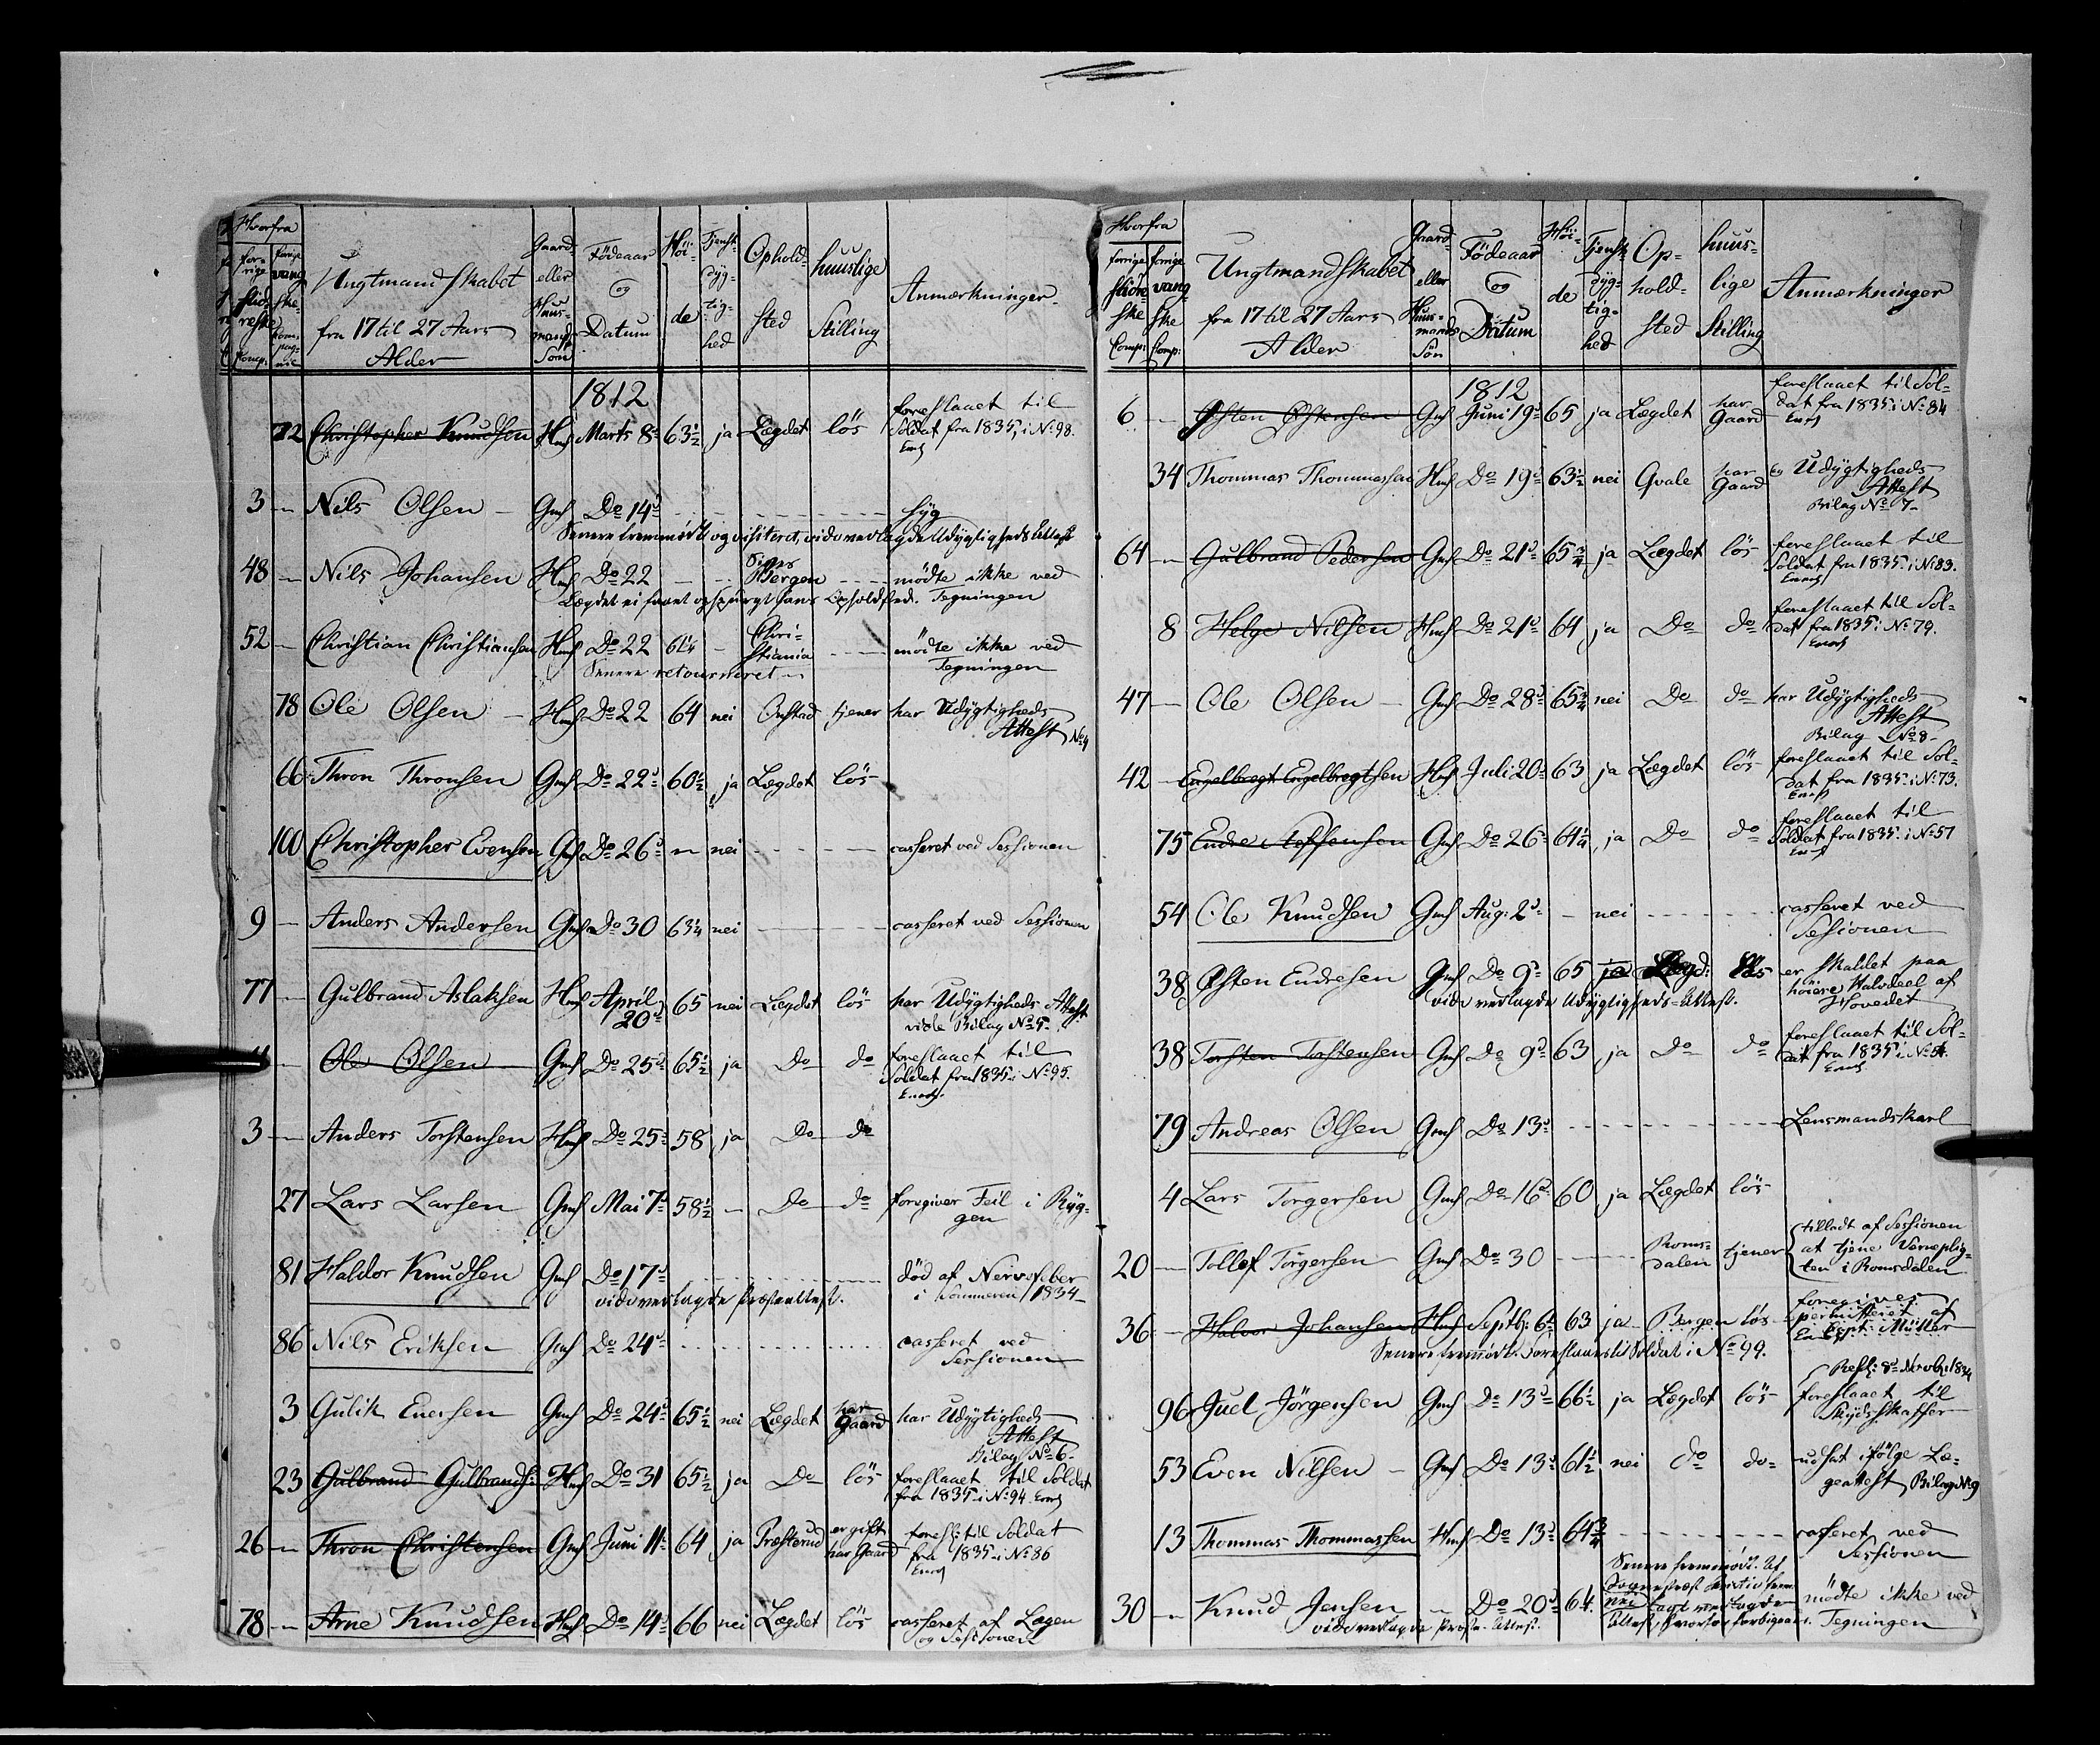 Hvorfra
forrige Slidreske Comp:
forrige vangske Compagnie
Ungtmandskabet
fra 17 til 27 Aars
Alder
Gaard- eller Huusmands Søn
Födeaar
og
Datum
Höide
Tjenst-dygtighed
Ophold-
sted
huuslige
Stilling
Anmærkninger
1812
72 Christopher Knudsen Hms Marts 8 63½ ja Lægdet lös foreslaaet til
Soldat fra 1835, i No 98.
3 — Nils Olsen — Gms Do 14d syg
Senere fremmødt og visiteret, vide vedlagde Udygtigheds Attest
48 — Nils Johansen Hms Do 22 — Bergen — mödte ikke ved
Lægdet ei faaet opspurgt hans Opholdsted. Tegningen
52 — Christian Christiansen Hms Do 22 61¼ — Christiania — mödte ikke ved
Senere retourneret — Tegningen
78 Ole Olsen — Hms Do 22 64 nei Onstad tjener har Udygtigheds
Attest No 4
66 Thron Thronsen Gms Do 22d 60½ ja Lægdet lös
100 Christopher Evensen Gms Do 26d — nei — casseret ved Sessionen
9 — Anders Andersen Gms Do 30 63¼ nei — casseret ved Sessionen
77 — Gulbrand Aslaksen Hms April 20d 65 nei Lægdet lös har Udygtigheds Attest
vide Bilag No 5
— Ole Olsen Gms Do 25d 65½ ja Do do foreslaaet til
Soldat fra 1835 i No 95.
3 — Anders Torstensen Hms Do 25 58 ja Do do
27 Lars Larsen Gms Mai 7d 58½ — Do do foregiver Feil i Ryg-
gen
81 Haldor Knudsen Gms Do 17d död af Nervefeber
vide vedlagde Præsteattest. i Sommeren 1834
86 Nils Eriksen Gms Do 24d casseret ved
Sessionen
3 Gulik Eversen Gms Do 24d 65½ nei Lægdet har Gaard har Udygtigheds
Attest
Bilag No 6
23 Gulbrand Gulbrands: Hms Do 31 65½ ja Do lös foreslaaet til Soldat
fra 1835 i No 94
26 — Thron Christensen Gms Juni 11 64 ja Præsterud er gift har Gaard foresl: til Soldat
fra 1835 i No 86
78 — Arne Knudsen Hms Do 14d 66 nei Lægdet lös casseret af Lægen
og Sessionen
Hvorfra
forrige Slidreske Comp:
forrige vangske Comp:
Ungtmandskabet
fra 17 til 27 Aars
Alder
Gaard- eller Huusmands Sön
Födeaar
og
Datum
Höide
Tjenstdygtighed
Ophold-
sted
huuslige
Stilling
Anmærkninger
1812
6 — Østen Østensen Gms Juni 19d 65 ja Lægdet har Gaard foreslaaet til Sol-
dat fra 1835 i No 84
34 Thommas Thommassen Hms Do 19d 63½ nei Qvale har Gaard Udygtigheds
Attest
Bilag No 7
64 — Gulbrand Pedersen Gms Do 21d 65¾ ja Lægdet lös foreslaaet til
Soldat fra 1835 i No 83.
8 Helge Nilsen Hms Do 21d 64 ja Do do foreslaaet til Sol-
dat fra 1835 i No 79.
47 — Ole Olsen — Gms Do 28d 65¾ nei Do do har Udygtigheds
Attest
Bilag No 8
42 — Engelbregt Engelbregtsen Hms Juli 20 63 ja Lægdet lös foreslaaet til Sol-
dat fra 1835 i No 73.
75 Endre Steffensen Gms Do 26 61¼ ja Do do foreslaaet til
Soldat fra 1835 i No 57
54 Ole Knudsen Gms Aug: 2d — nei — casseret ved
Sessionen
38 Østen Endresen Gms Do 9d 65 ja Lægd: lös er skaldet paa
höiere Halvdeel af
Hovedet
vide vedlagde Udygtigheds-Attest.
38 Torsten Torstensen Gms Do 9d 63 ja Do do foreslaaet til Sol-
dat fra 1835 i No 54.
79 Andreas Olsen Gms Do 13d — Lensmandskarl
4 Lars Torgersen Gms Do 16d 60 ja Lægdet lös
20 — Tollef Torgersen Gms Do 30 — Roms-dalen tjener tilladt af Sessionen
at tjene Værneplig-
ten i Romsdalen
36 — Halvor Johansen Hms Septb: 6d 63 ja Bergen lös foregives
permitteret af
Capt: Müller
Senere fremmödt. Foreslaaes til Soldat i No 99.
96 Juel Jörgensen Gms Do 13d 66½ ja Lægdet lös Resl: 8d Novbr: 1834
foreslaaet til
Skydsskaffer
53 Even Nilsen — Gms Do 13d 61½ nei do do udsat ifölge Læ-
geattest, Bilag No 9
13 Thommas Thommassen Hms Do 13d 64¾ — casseret ved
Sessionen
30 — Knud Jensen — Do 20d 64. nei mödte ikke ved
vide vedlagde Præste-Attest. Tegningen